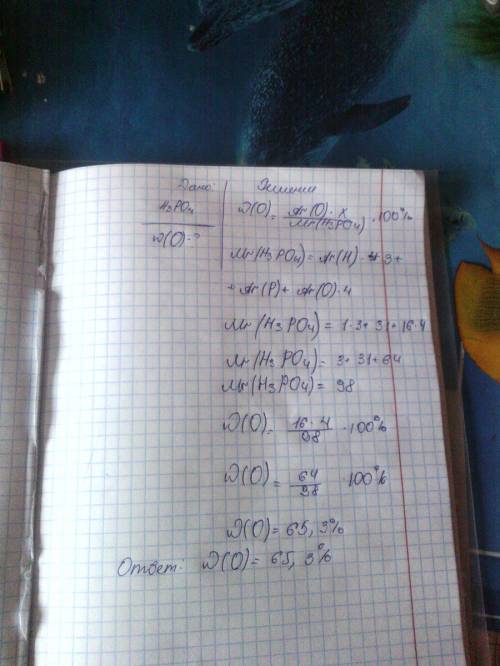 Дано:
H₃PO₄
W(O)-?
Решение
W(O) = Ar(O)·x / Mr(H₃PO₄) ·100%
Mr(H₃PO₄) = Ar(H)·3+
+ Ar(P)+ Ar(O)·4
Mr(H₃PO₄) = 1·3+31+16·4
Mr(H₃PO₄) = 3+31+64
Mr(H₃PO₄) = 98
W(O) = 16·4 / 98 ·100%
W(O) = 64 / 98 100%
W(O) = 65,3%
Ответ: W(O) = 65,3%